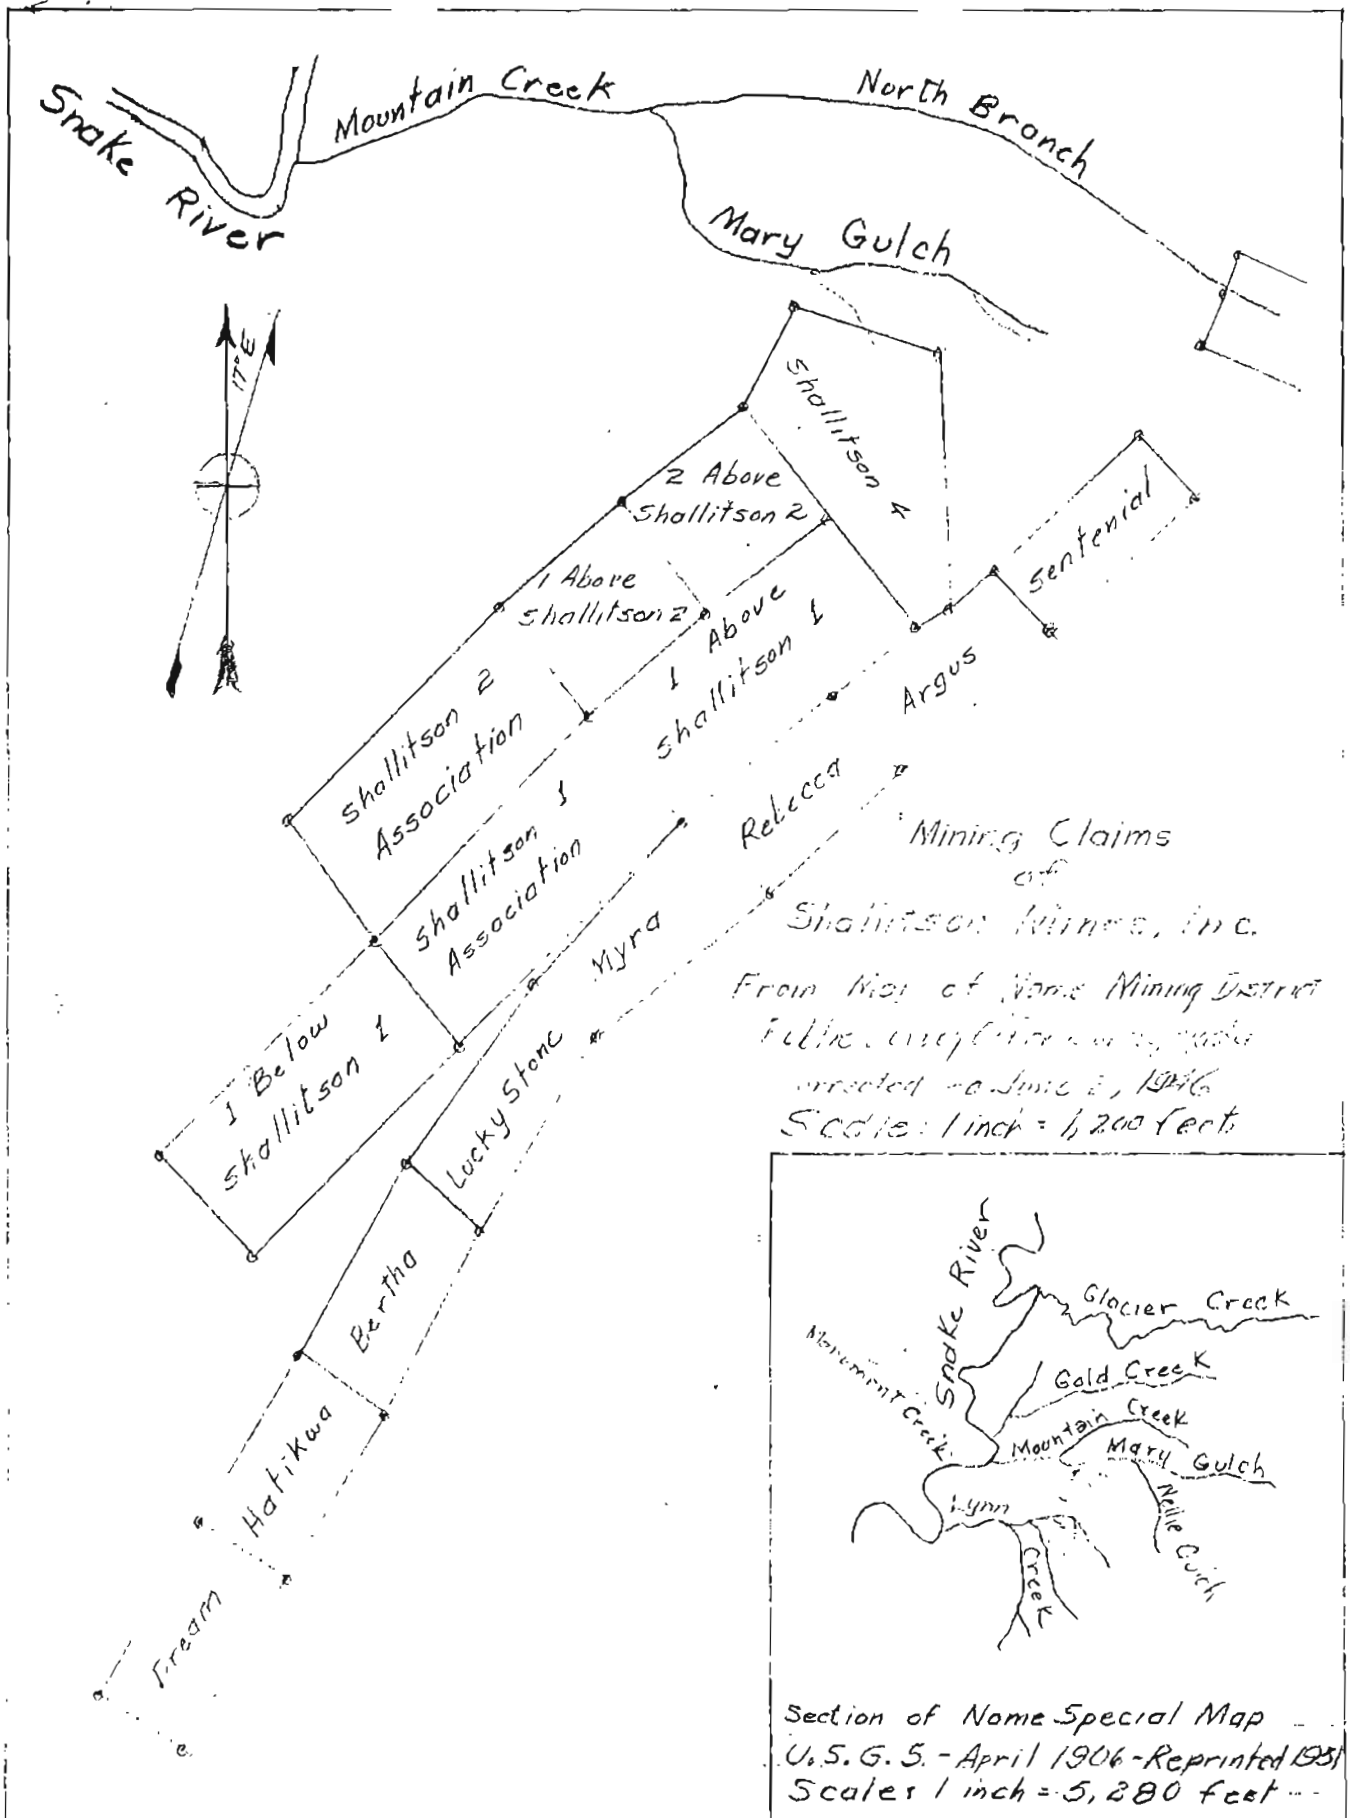 Snake River
Mountain Creek
North Branch
Mary Gulch
17° E
Shallitson 4
2 Above
Shallitson 2
1 Above
Shallitson 2
Sentenial
1 Above
Shallitson 1
Argus
Shallitson 2
Association
Shallitson 1
Association
Rebecca
Myra
1 Below
Shallitson 1
Lucky Stone
Bertha
Hatikwa
Mining Claims
of
Shallitson Mines, Inc.
From Map of Nome Mining District
corrected to June 2, 1946
Scale: 1 inch = 1,200 feet
Snake River
Glacier Creek
Monument Creek
Gold Creek
Mountain Creek
Mary Gulch
Lynn
Creek
Nellie Gulch
Section of Nome Special Map
U.S.G.S. - April 1906 - Reprinted 1951
Scale: 1 inch = 5,280 feet